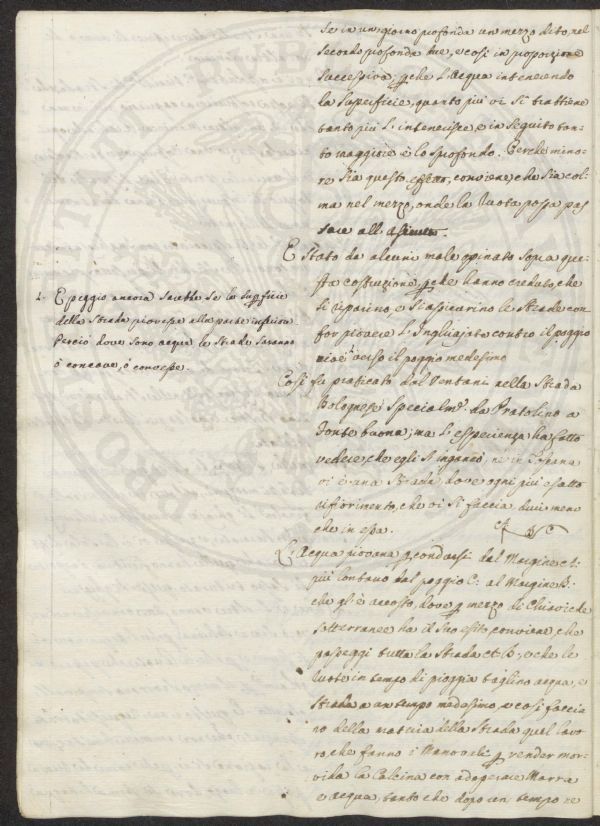 Se in un giorno profonda un mezzo dito, nel
secondo profonda tre, e così in proporzione
successiva; pche l'Acqua intenerendo
la Superficie, quanto più vi si trattiene
tanto più l'intenerisce, e in seguito tan-
to maggiore è lo sprofondo. Perche mino-
re sia questo effetto, conviene, che sia col-
ma nel mezzo, onde la Ruota possa pas
sare all asciutto.
E stato da alcuni male opinato sopra que-
sta costruzione, pche hanno creduto, che
si riparino, e si assicurino le Strade con
for piovere l'Inghiajata contro il poggio
cioè verso il poggio medesimo
E peggio ancora sarebbe se la superficie
della Strada piovesse alla parte inferiore
perciò dove sono acque le Strade saranno
ò concave, ò convesse.
Così fu praticato dal Ventani nella Strada
Bolognese specialmᵉ. da Pratolino a
Fonte buona; ma l'esperienza ha fatto
vedere, che egli s'ingannò, nè in Toscana
vi è una Strada dove ogni più esatto
rifiorimento, che vi si faccia duri meno
che in essa.
L'Acqua piovana p condursi dal Margine A:
più lontano dal poggio C: al Margine B:
che gl'è accosto, dove p mezzo di Chiaviche
sotterranee ha il suo esito, conviene, che
passeggi tutta la Strada A.B:, e che le
ruote in tempo di pioggia taglino acqua, e
Strada a un tempo medesimo, e così faccia
no della materia della Strada quel lavo
ro, che fanno i Manovali p render mor-
vida la Calcina con adoperare Marra
e acqua, tanto che dopo un tempo ne